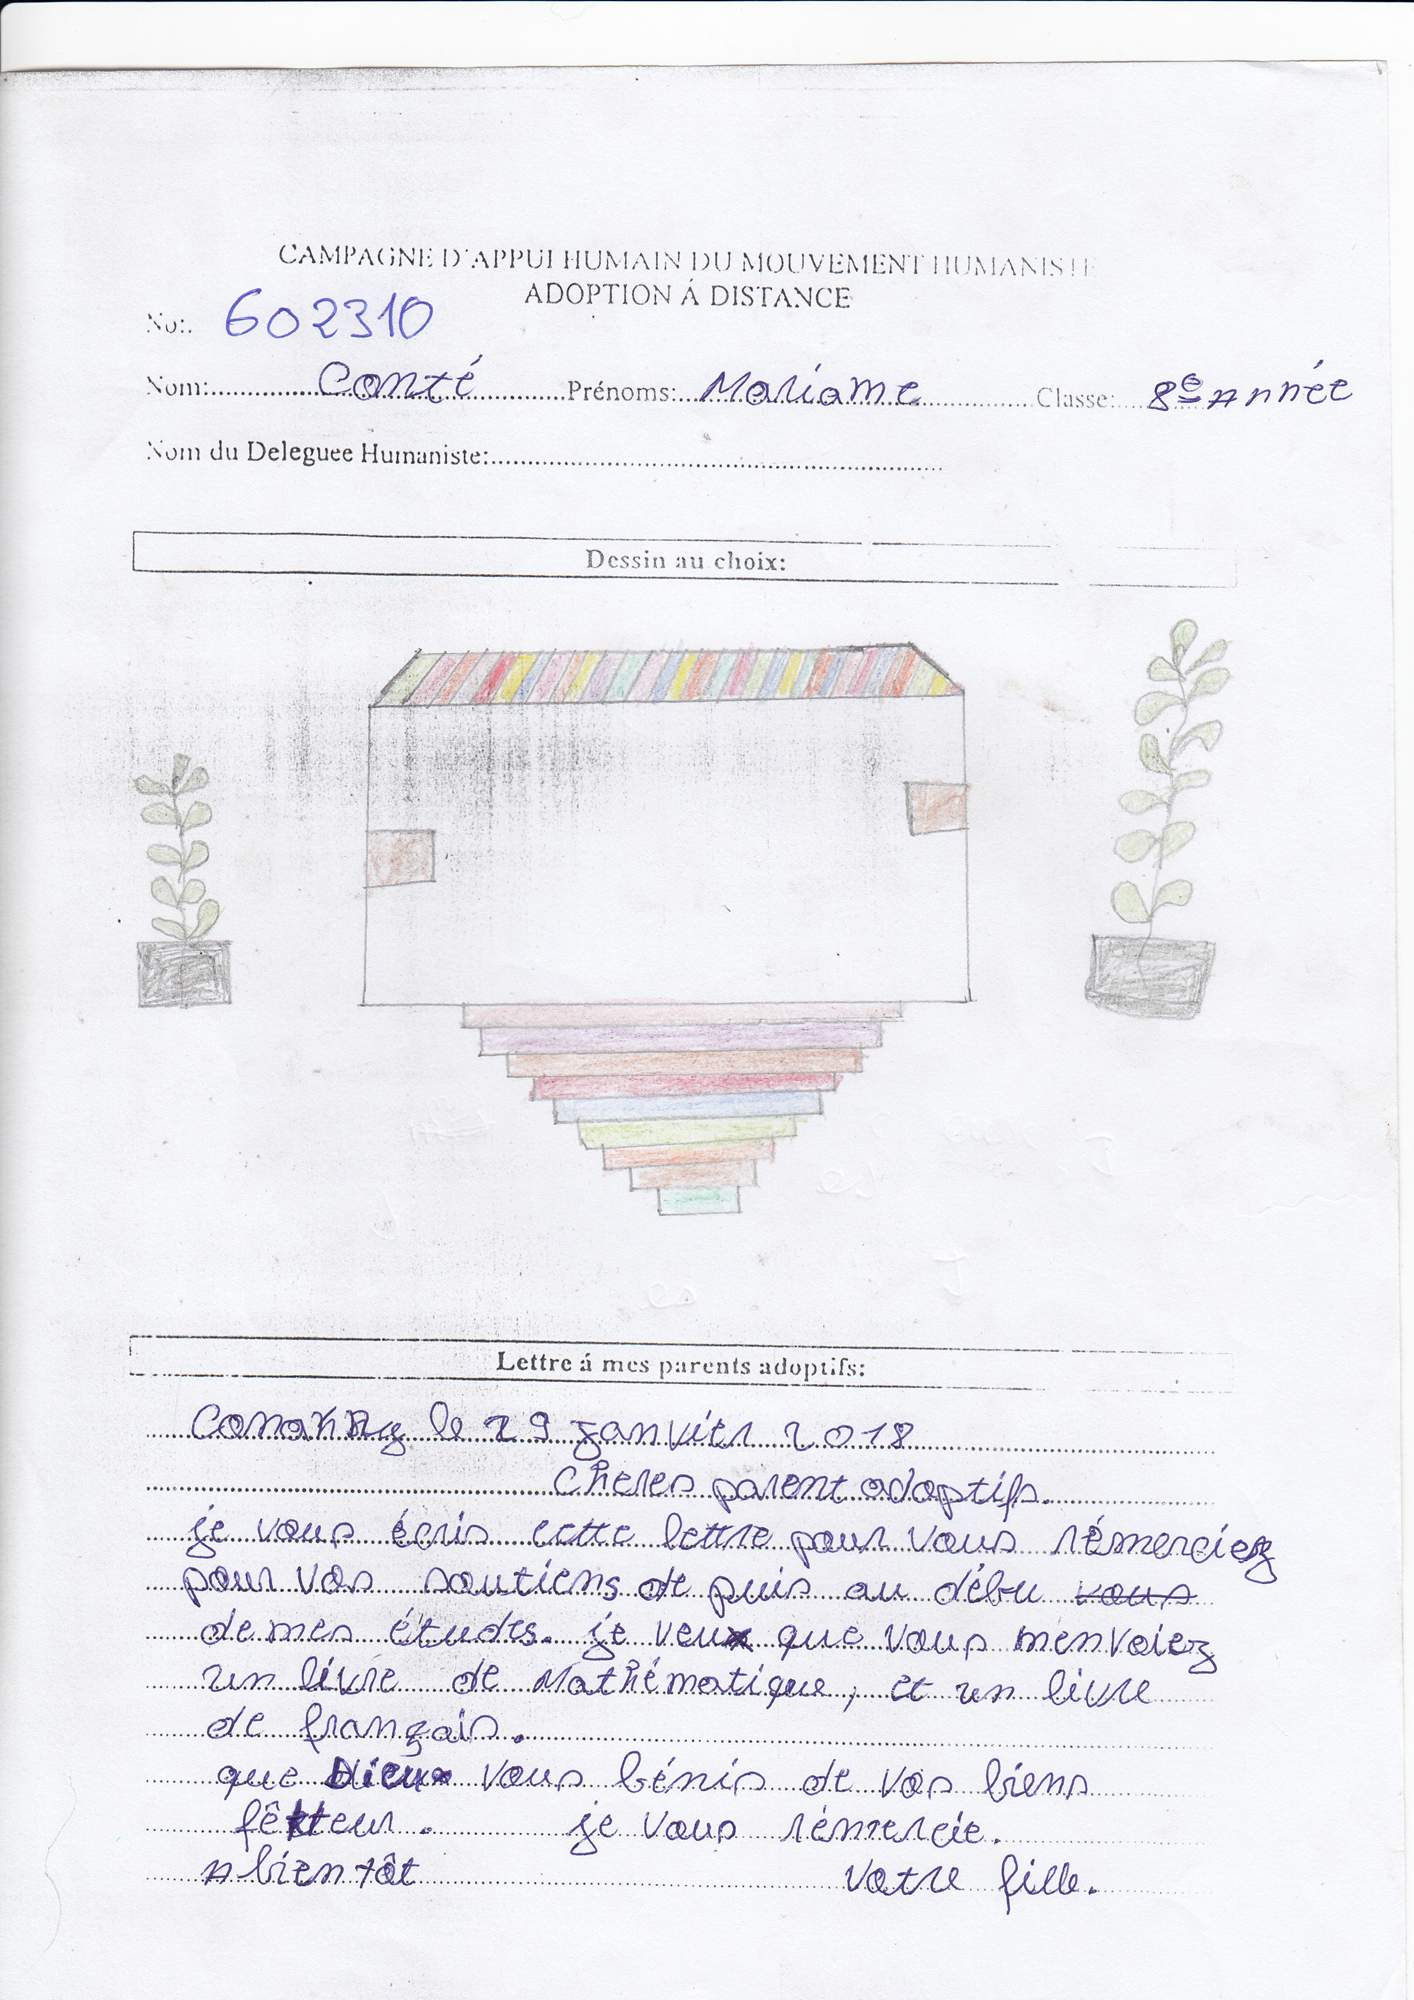 CAMPAGNE D'APPUI HUMAIN DU MOUVEMENT HUMANISTE
ADOPTION Á DISTANCE
No:. 602310
Nom: Conté Prénoms: Mariame Classe: 8e Année
Nom du Deleguee Humaniste:
Dessin au choix:
Lettre á mes parents adoptifs:
Conakry le 29 janvier 2018
Cheres parent adoptifs.
je vous écris cette lettre pour vous rémerciez
pour vos soutiens de puis au débu vous
de mes études. je veux que vous menvoiez
un livre de Mathématique, et un livre
de français.
que Dieu vous bénis de vos biens
fêtteur. je vous rémercie.
A bien tôt votre fille.